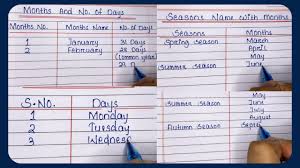 Months And No. of Days
Months No. Months Name No. of Days
1 January 31 Days
2 February 28 Days
(common year)
Seasons Name with Months
Seasons Months
Spring Season March
April
Summer Season May
June
S.No. Days
1 Monday
2 Tuesday
3 Wednesd
May
Summer Season June
July
August
Autumn Season Septem